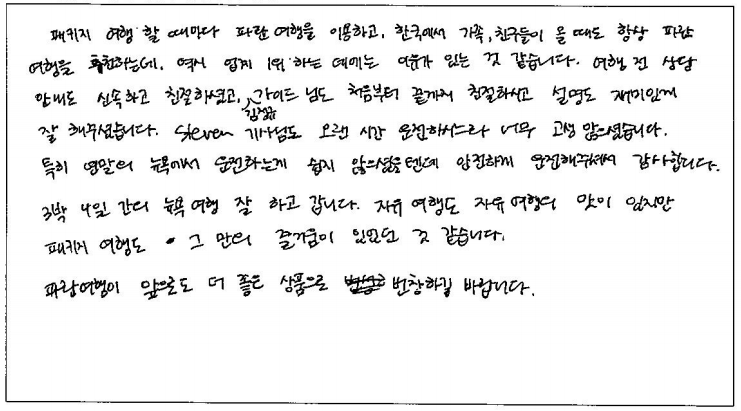 패키지 여행 할 때마다 파란 여행을 이용하고, 한국에서 가족, 친구들이 올 때도 항상 파란
여행을 추천하는데, 역시 업계 1위 하는 데에는 이유가 있는 것 같습니다. 여행 전 상담
안내도 신속하고 친절하셨고, 가이드 님도 처음부터 끝까지 친절하시고 설명도 재미있게
잘 해주셨습니다. Steven 기사님도 오랜 시간 운전하시느라 너무 고생 많으셨습니다.
특히 연말의 뉴욕에서 운전하는게 쉽지 않으셨을텐데 안전하게 운전해주셔서 감사합니다.
3박 4일 간의 뉴욕 여행 잘 하고 갑니다. 자유 여행도 자유 여행의 맛이 있지만
패키지 여행도 그 만의 즐거움이 있었던 것 같습니다.
파란여행이 앞으로도 더 좋은 상품으로 번창하길 바랍니다.